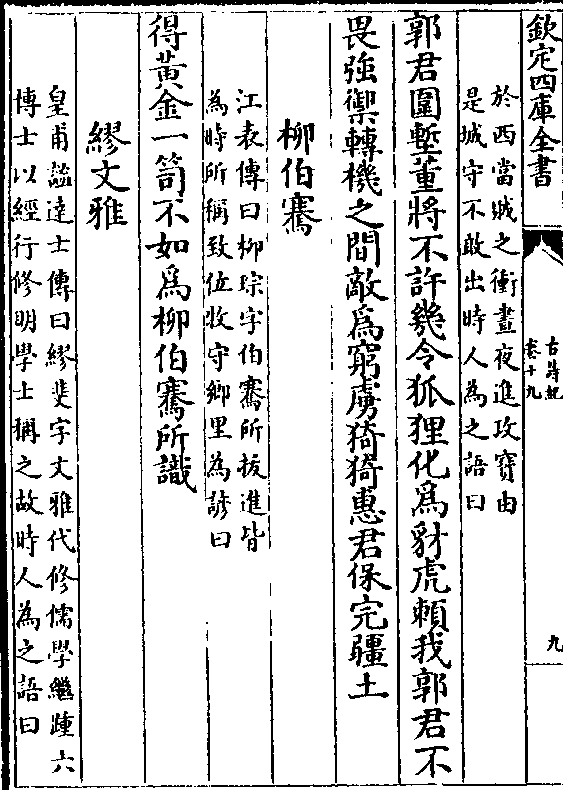 欽定四庫全書
古詩紀
卷十九
九
於西當賊之衝晝夜進攻寶由
是城守不敢出時人為之語曰
郭君圍塹董將不許幾令狐狸化為豺虎賴我郭君不
畏強禦轉機之間敵為窮虜猗猗惠君保完疆土
柳伯騫
江表傳曰柳琮字伯騫所拔進皆
為時所稱致位牧守鄉里為諺曰
得黃金一笥不如為柳伯騫所識
繆文雅
皇甫謐達士傳曰繆斐字文雅代修儒學繼踵六
博士以經行修明學士稱之故時人為之語曰